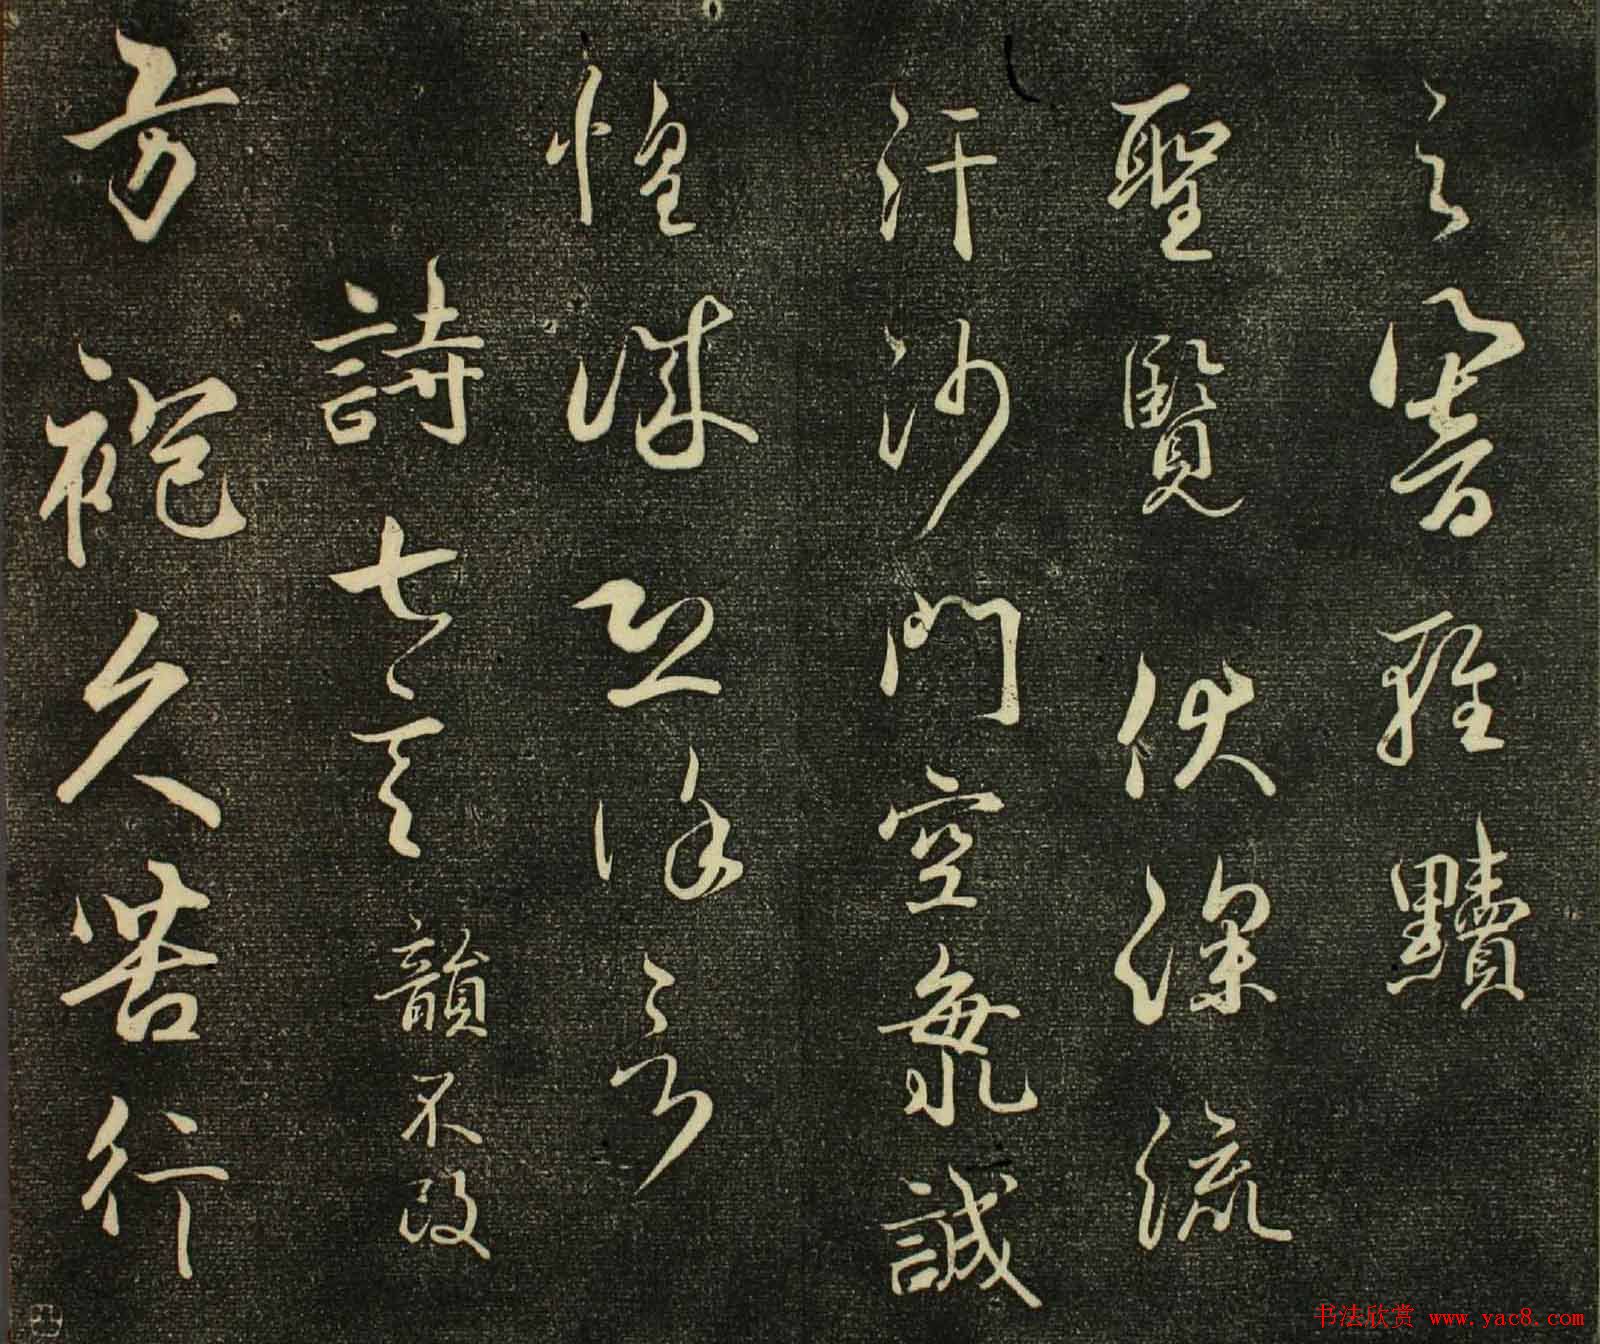 之響輕黷
聖覽伏深流
汗沙門空海誠
惶誠恐謹言
詩七言 韻不改
方袍久苦行
书法欣赏 www.yac8.com